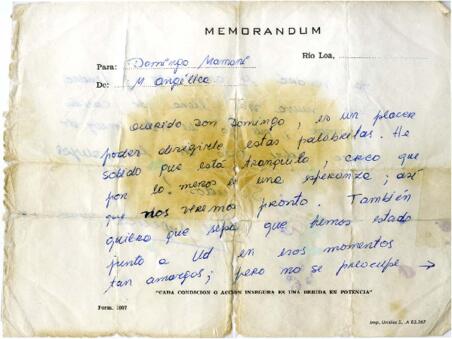 MEMORANDUM
Río Loa,
Para: Domingo Mamani
De: M Angélica
Querido Don Domingo, es un placer
poder dirigirle estas palabritas. He
sabido que está tranquilo, creo que
por lo menos es una esperanza; así
que nos veremos pronto. También
quiero que sepa que hemos estado
junto a Ud en esos momentos
tan amargos; pero no se preocupe →
"CADA CONDICION O ACCION INSEGURA ES UNA HERIDA EN POTENCIA"
Form. 1007